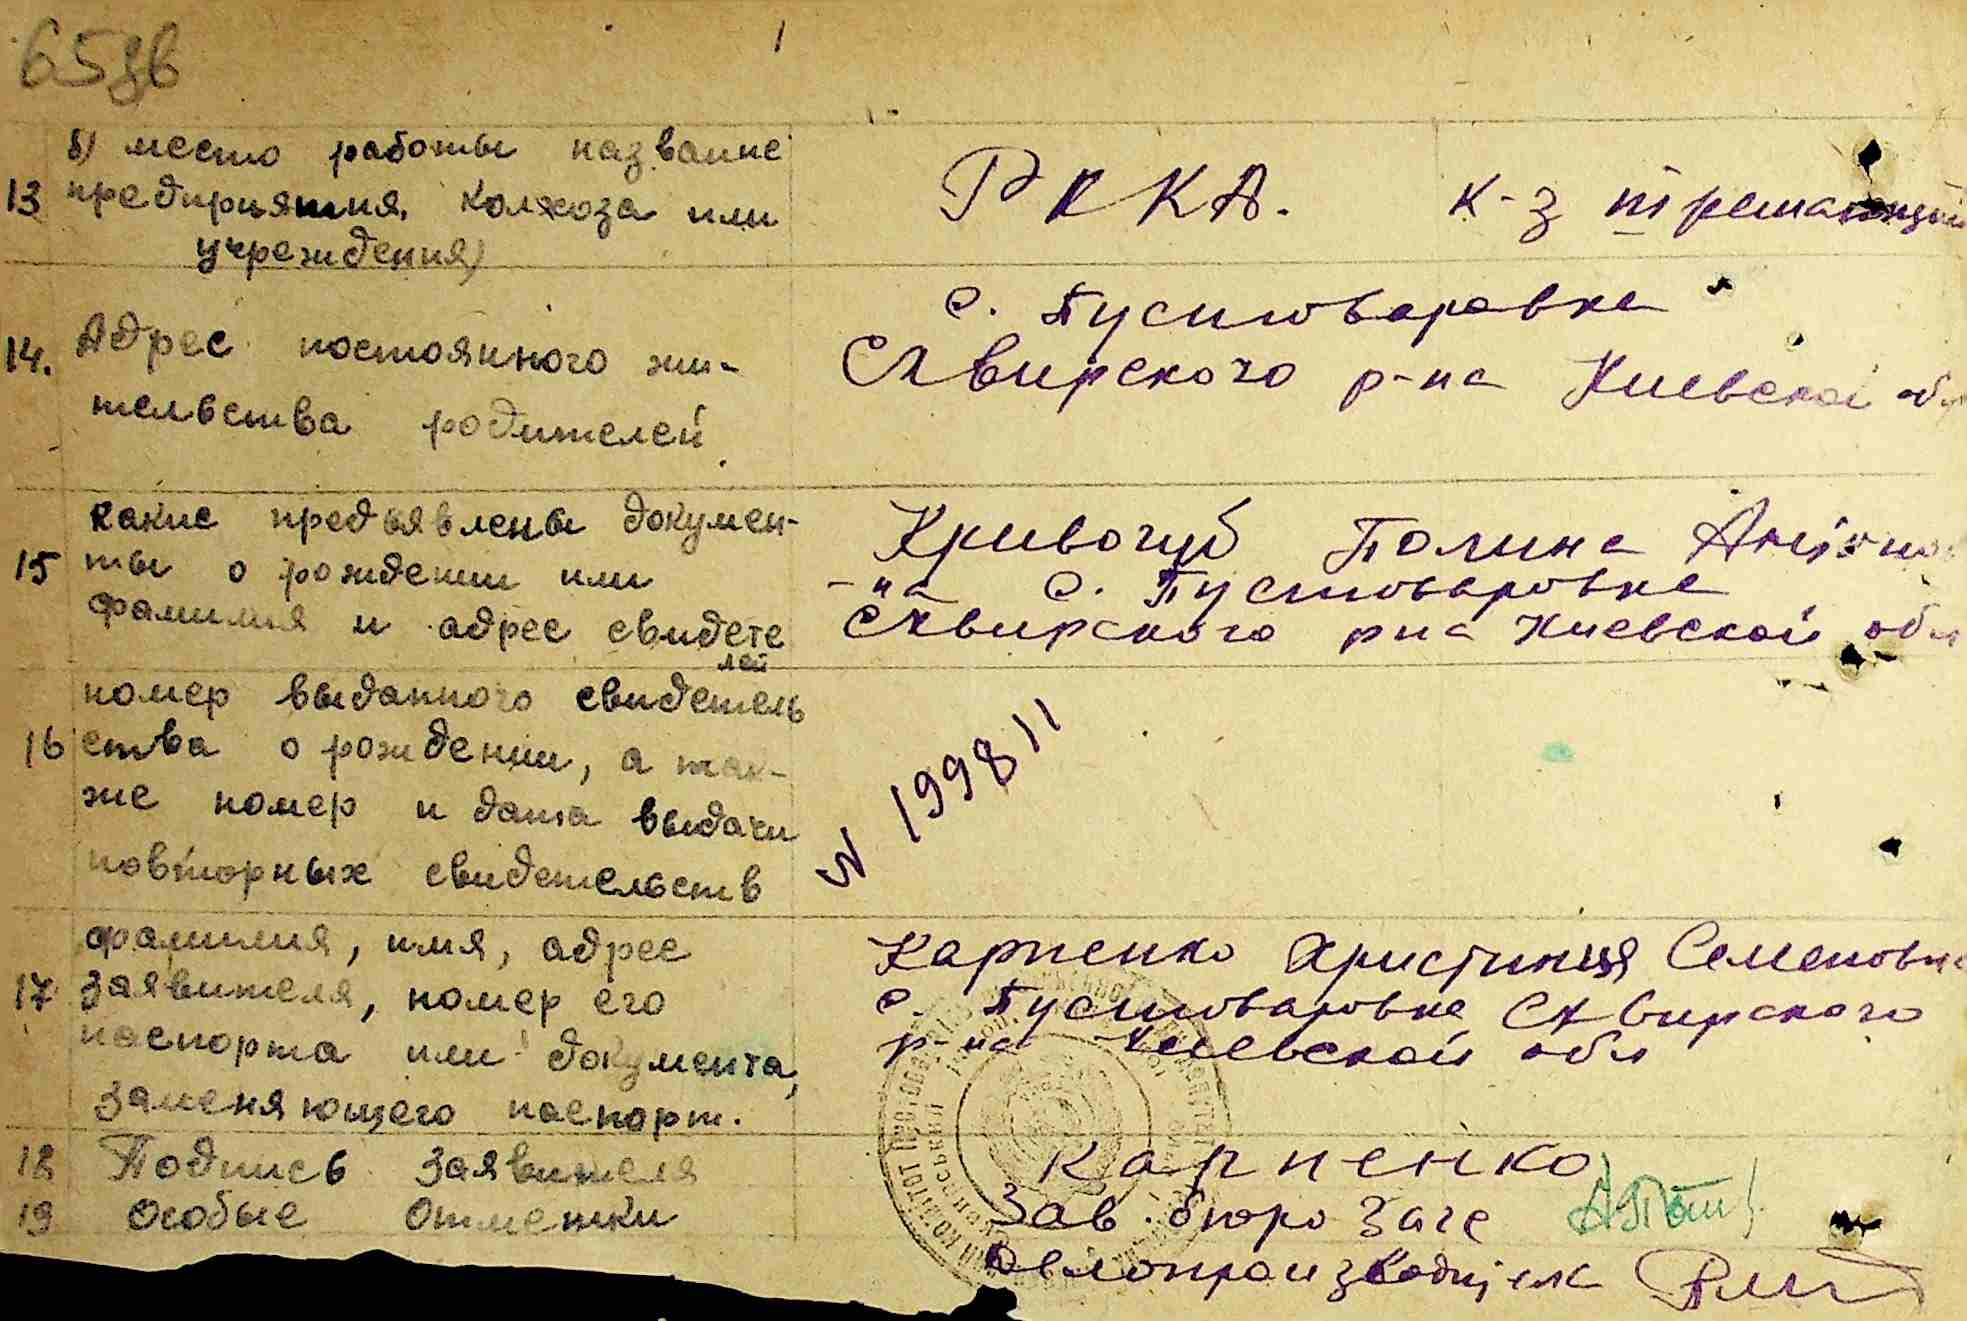 65зв
б) место работы название
13 предприятия, колхоза или
учреждения)
Р К К А. к-з
14. Адрес постоянного жи-
тельства родителей
с. Пустоваровка
Сквирского р-на Киевской обл
15 какие предъявлены докумен-
ты о рождении или
фамилия и адрес свидете
лей
Кривочуб Полина Антонов
-на с. Пустоваровка
Сквирского р-на Киевской обл
номер выданного свидетель
16 ства о рождении, а так-
же номер и дата выдачи
повторных свидетельств
N 199811
фамилия, имя, адрес
17 заявителя, номер его
паспорта или документа,
заменяющего паспорт.
Карпенко Христиния Семеновна
с. Пустоваровка Сквирского
р-на Киевской обл
18 Подпись заявителя
Карпенко
19 Особые отметки
Зав. бюро Загс
Делопроизводитель